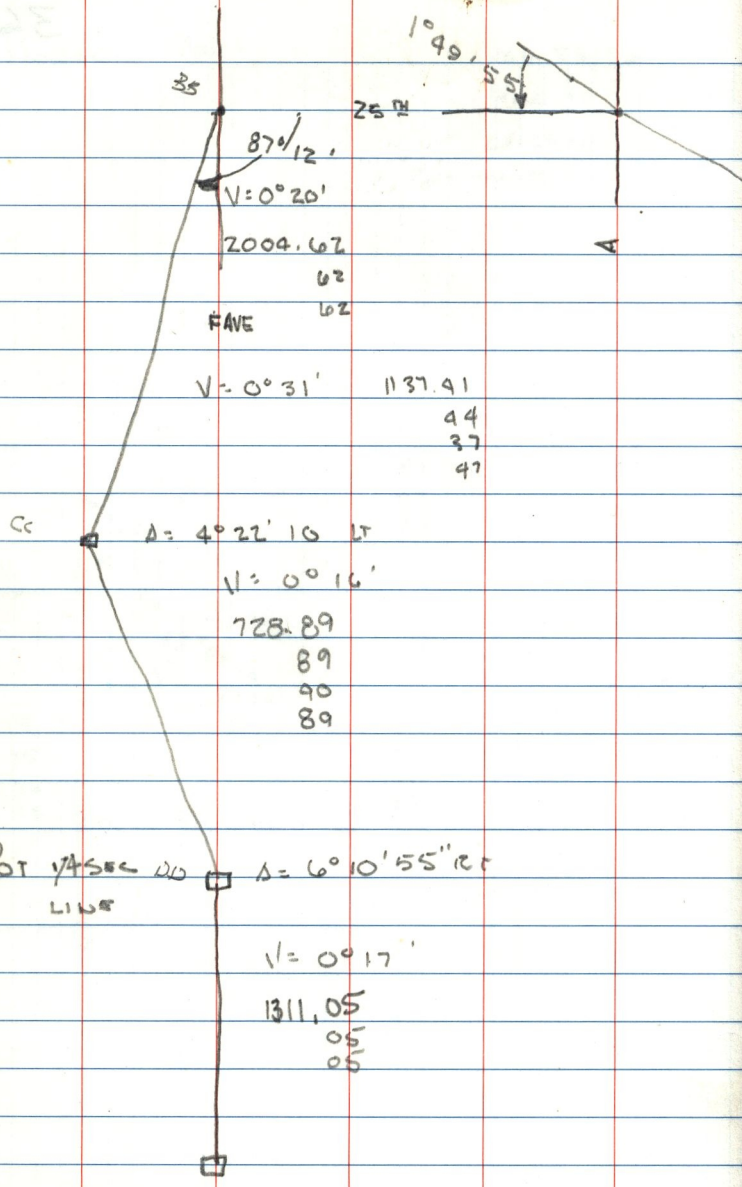 1° 49' 55
35
25TH
87°/12'
V=0°20'
2004.62
62
62
A
F AVE
V= 0° 31' 1137.41
44
37
47
CC Δ= 4° 22' 10 LT
V= 0° 16'
728.89
89
90
89
1/4 SEC DD Δ= 6° 10' 55" RT
LINE
V= 0° 17'
1311.05
05
05